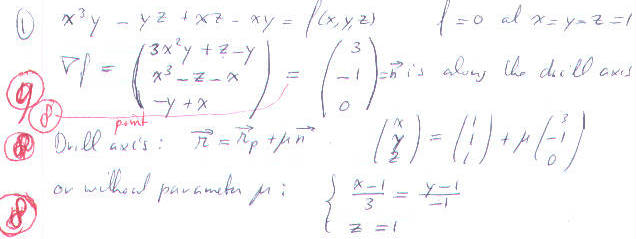 ① x³y - yz + xz - xy = f(x,y,z)   f=0 at x=y=z=1
∇f = (3x²y + z - y, x³ - z - x, -y + x) = (3, -1, 0) = n⃗ is along the drill axis
9
8 point
8 Drill axis: r⃗ = r⃗p + μn⃗   (x, y, z) = (1, 1, 1) + μ(3, -1, 0)
8 or without parameter μ: { x-1/3 = y-1/-1
z = 1